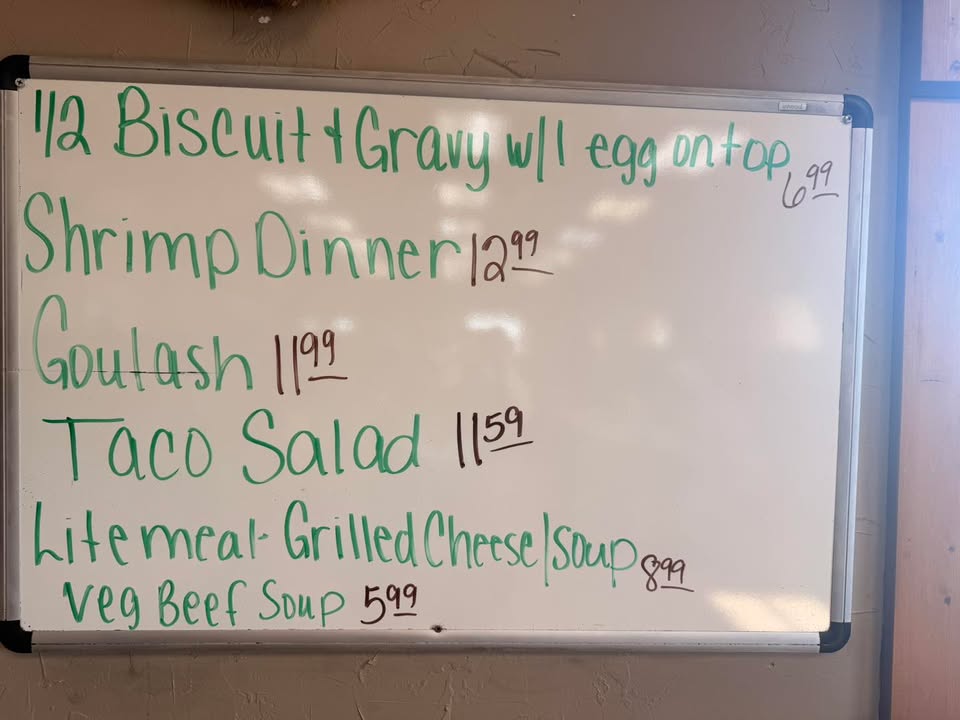 1/2 Biscuit & Gravy w/1 egg on top 6.99
Shrimp Dinner 12.99
Goulash 11.99
Taco Salad 11.59
Lite meal - Grilled Cheese/soup 8.99
Veg Beef Soup 5.99